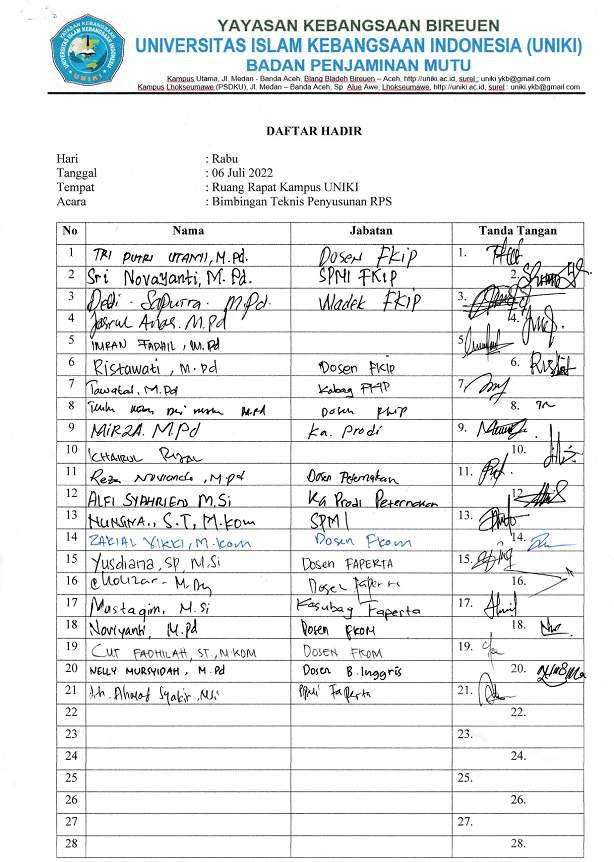 YAYASAN KEBANGSAAN BIREUEN
UNIVERSITAS ISLAM KEBANGSAAN INDONESIA (UNIKI)
BADAN PENJAMINAN MUTU
Kampus Utama, Jl. Medan - Banda Aceh, Blang Bladeh Bireuen – Aceh, http://uniki.ac.id, surel : uniki.ykb@gmail.com
Kampus Lhokseumawe (PSDKU), Jl. Medan – Banda Aceh, Sp. Alue Awe, Lhokseumawe, http://uniki.ac.id, surel : uniki.ykb@gmail.com
UNIKI
DAFTAR HADIR
Hari : Rabu
Tanggal : 06 Juli 2022
Tempat : Ruang Rapat Kampus UNIKI
Acara : Bimbingan Teknis Penyusunan RPS
No Nama Jabatan Tanda Tangan
1 TRI PUTRI UTAMI, M.Pd. Dosen FKIP 1.
2 Sri Novayanti, M.Pd. SPMI FKIP 2.
3 Dedi - Saputra. M.Pd. Wadek FKIP 3.
4 M.Pd 4.
5 IMRAN FADHIL, M.Pd 5
6 Ristawati, M.Pd Dosen FKIP 6.
7 M.Pd Kabag FKIP 7,
8 M.Pd Dosen FKIP 8.
9 MIRZA. M.Pd Ka. Prodi 9.
10 10.
11 Reza M.Pd Dosen Peternakan 11.
12 ALFI M.Si Ka Prodi Peternakan 12
13 S.T, M.Kom SPMI 13.
14 M.Kom Dosen Fkom 14.
15 Yusdiana, SP, M.Si Dosen FAPERTA 15.
16 Dosen Faperta 16.
17 Mustaqim, M.Si Kasubag Faperta 17.
18 Noviyanti, M.Pd Dosen FKOM 18.
19 CUT FADHILAH, ST., M.KOM DOSEN FKOM 19.
20 NELLY MURSYIDAH, M.Pd Dosen B. Inggris 20.
21 Ahmad Syakir, M.Si Faperta 21.
22 22.
23 23.
24 24.
25 25.
26 26.
27 27.
28 28.